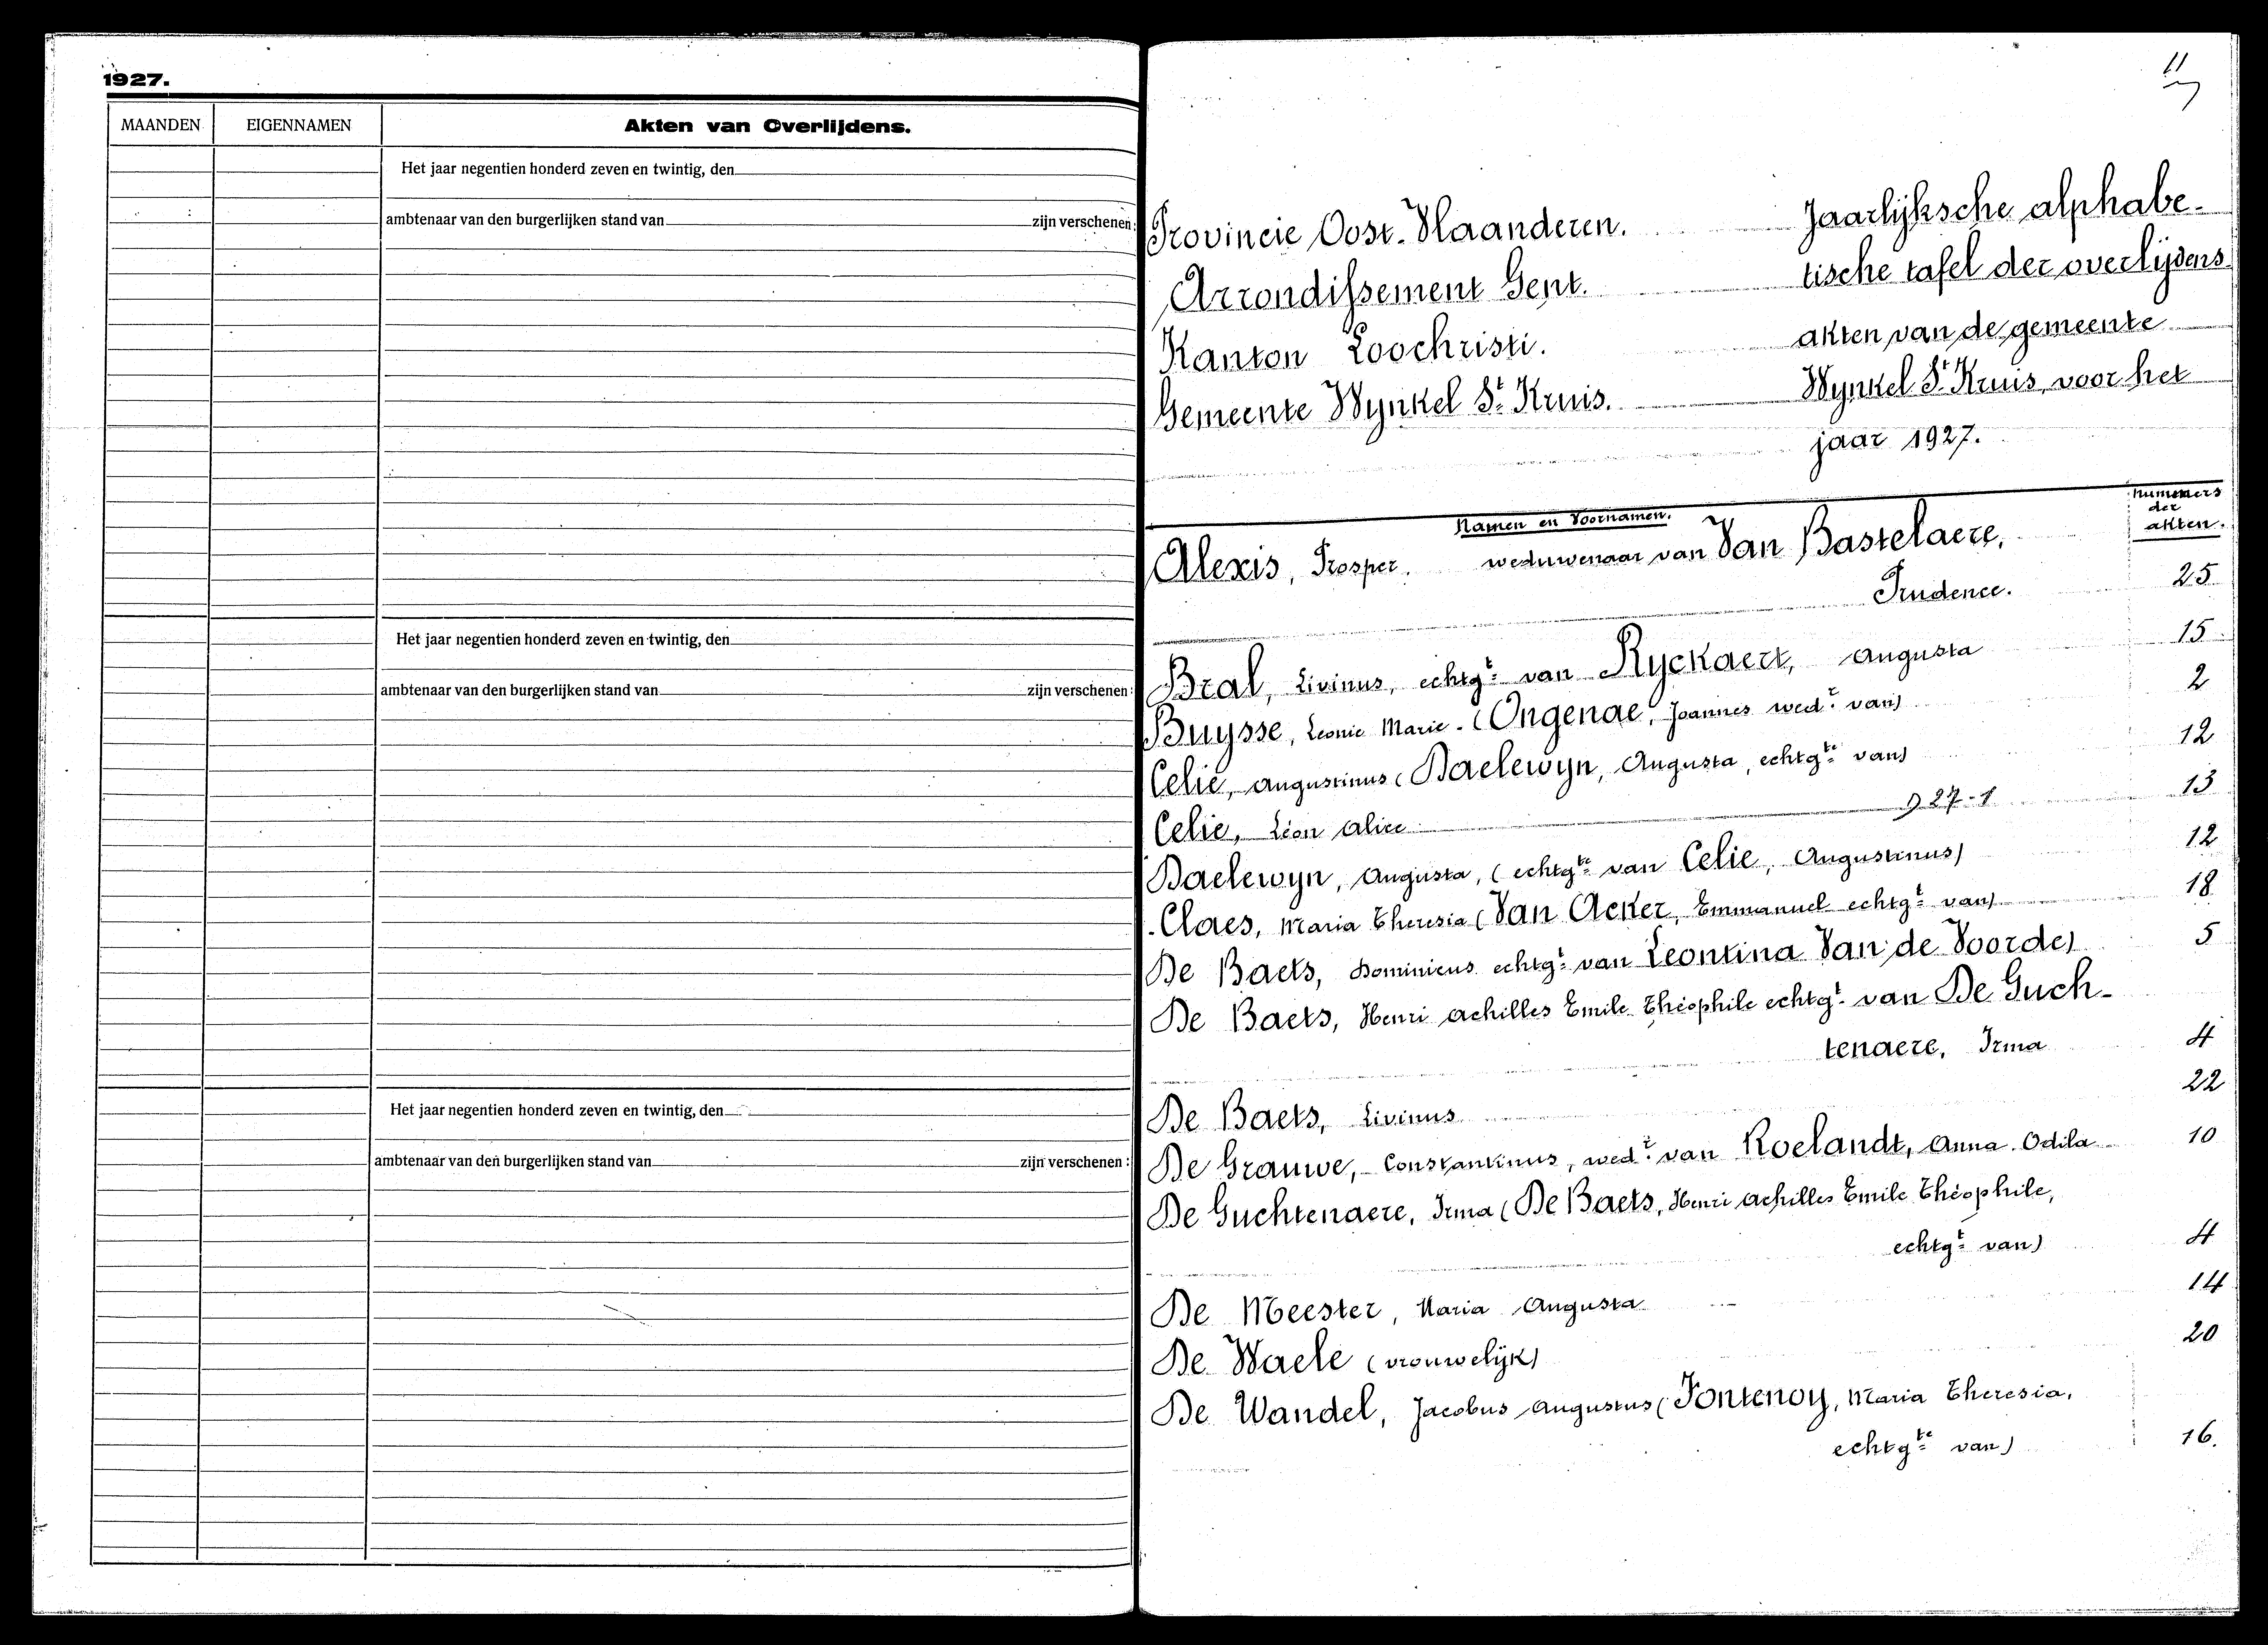 1927.
MAANDEN
EIGENNAMEN
Akten van Overlijdens.
Het jaar negentien honderd zeven en twintig, den
ambtenaar van den burgerlijken stand van
zijn verschenen:
Het jaar negentien honderd zeven en twintig, den
ambtenaar van den burgerlijken stand van
zijn verschenen:
Het jaar negentien honderd zeven en twintig, den
ambtenaar van den burgerlijken stand van
zijn verschenen:
11
Provincie Oost-Vlaanderen.
Arrondissement Gent.
Kanton Loochristi.
Gemeente Wynkel St. Kruis.
Jaarlijksche alphabe-
tische tafel der overlijdens
akten van de gemeente
Wynkel St. Kruis, voor het
jaar 1927.
Namen en Voornamen.
nummers
der
akten.
Alexis, Prosper. weduwenaar van Van Bastelaere,
Prudence. 25
Bral, Livinus, echtgt van Ryckaert, Augusta 15
Buysse, Leonie Marie. (Ongenae, Joannes wedr van) 2
Celie, Augustinus (Baelewyn, Augusta, echtgte van) 12
Celie, Léon Alice 927-1 13
Baelewyn, Augusta, (echtgte van Celie, Augustinus) 12
Claes, Maria Theresia (Van Acker, Emmanuel echtgt van) 18
De Baets, Dominicus echtgt van Leontina Van de Voorde) 5
De Baets, Henri Achilles Emile Théophile echtgt van De Guch-
tenaere, Irma 4
De Baets, Livinus 22
De Grauwe, Constantinus, wedr van Roelandt, Anna Odila 10
De Guchtenaere, Irma (De Baets, Henri Achilles Emile Théophile,
echtgt van) 4
De Meester, Maria Augusta 14
De Waele (vrouwelijk) 20
De Wandel, Jacobus Augustus (Fontenoy, Maria Theresia,
echtgte van) 16.